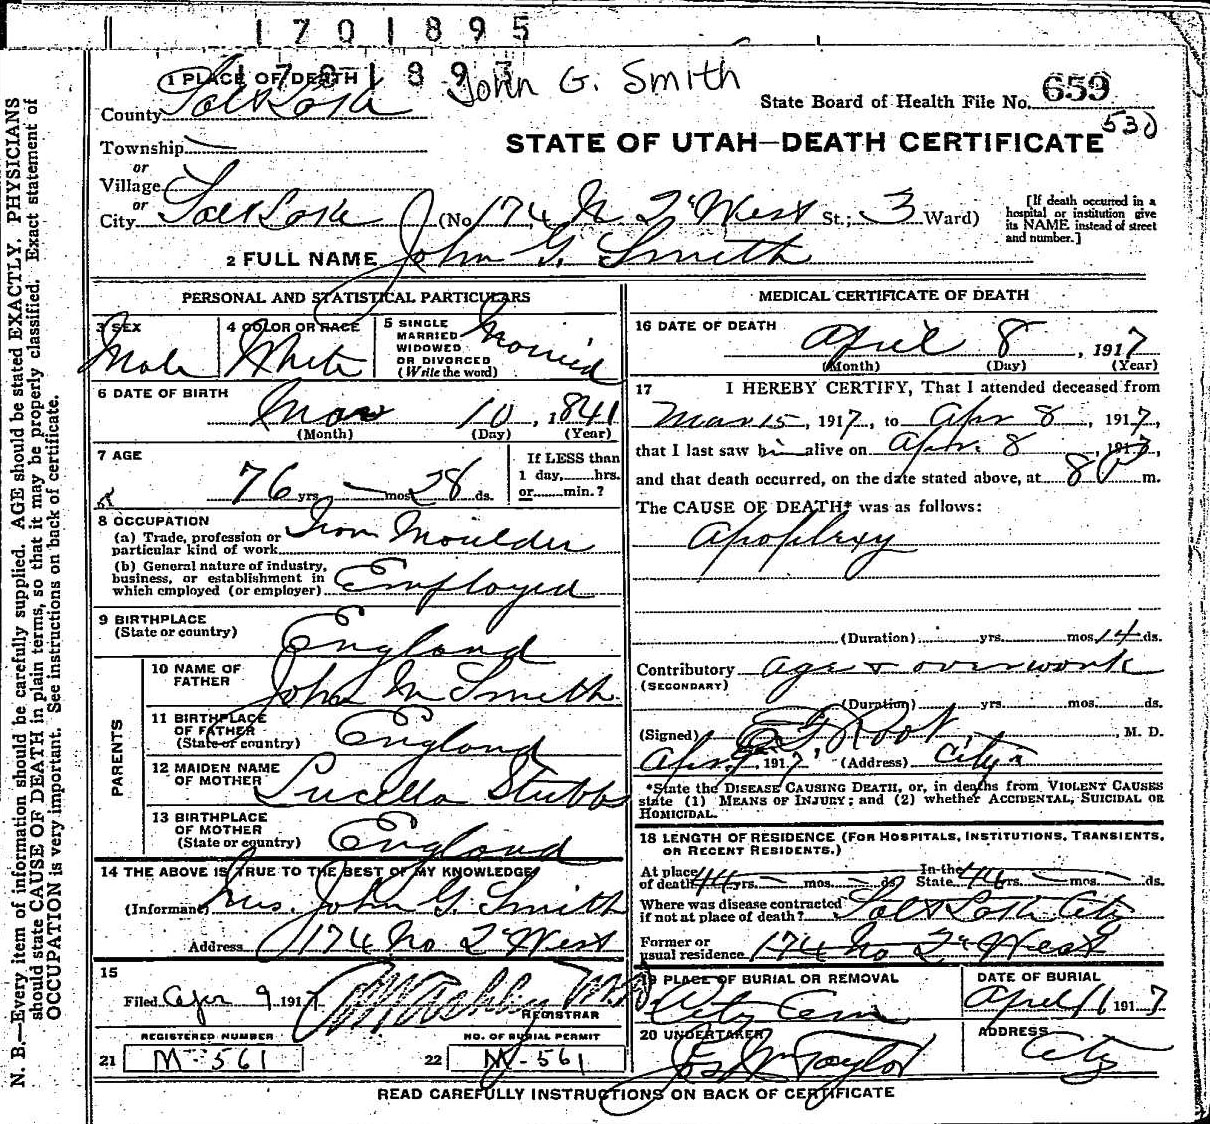 1701895
1701895
John G. Smith
1 PLACE OF DEATH
County Salt Lake
State Board of Health File No. 659
530
Township
or
STATE OF UTAH—DEATH CERTIFICATE
Village
or
City Salt Lake (No. 174 N 2d West St.; 3 Ward)
[If death occurred in a hospital or institution give its NAME instead of street and number.]
2 FULL NAME John G. Smith
PERSONAL AND STATISTICAL PARTICULARS
3 SEX
Male
4 COLOR OR RACE
White
5 SINGLE
MARRIED
WIDOWED
OR DIVORCED
(Write the word)
Married
6 DATE OF BIRTH
Mar 10, 1841
(Month) (Day) (Year)
7 AGE
76 yrs. — mos. 28 ds.
If LESS than
1 day, hrs.
or min.?
8 OCCUPATION
(a) Trade, profession or
particular kind of work Iron Moulder
(b) General nature of industry,
business, or establishment in
which employed (or employer) Employed
9 BIRTHPLACE
(State or country) England
PARENTS
10 NAME OF
FATHER John M Smith
11 BIRTHPLACE
OF FATHER
(State or country) England
12 MAIDEN NAME
OF MOTHER Lucella Stubbs
13 BIRTHPLACE
OF MOTHER
(State or country) England
14 THE ABOVE IS TRUE TO THE BEST OF MY KNOWLEDGE
(Informant) Mrs. John G. Smith
Address 174 No 2d West
15
Filed Apr 9 1917
REGISTRAR
REGISTERED NUMBER
21 M-561
NO. OF BURIAL PERMIT
22 M-561
MEDICAL CERTIFICATE OF DEATH
16 DATE OF DEATH
April 8, 1917
(Month) (Day) (Year)
17 I HEREBY CERTIFY, That I attended deceased from
Mar 15, 1917, to Apr 8, 1917,
that I last saw him alive on Apr. 8, 1917,
and that death occurred, on the date stated above, at 8 P m.
The CAUSE OF DEATH* was as follows:
Apoplexy
(Duration) yrs. mos. 14 ds.
Contributory age & overwork
(SECONDARY)
(Duration) yrs. mos. ds.
(Signed) Root, M. D.
Apr. 9, 1917 (Address) City
*State the DISEASE CAUSING DEATH, or, in deaths from VIOLENT CAUSES
state (1) MEANS OF INJURY; and (2) whether ACCIDENTAL, SUICIDAL OR
HOMICIDAL.
18 LENGTH OF RESIDENCE (FOR HOSPITALS, INSTITUTIONS, TRANSIENTS,
OR RECENT RESIDENTS.)
At place
of death 44 yrs. — mos. — ds.
In the
State 44 yrs. — mos. — ds.
Where was disease contracted
if not at place of death? Salt Lake City
Former or
usual residence 174 No 2d West
19 PLACE OF BURIAL OR REMOVAL
City Cem
DATE OF BURIAL
April 11 1917
20 UNDERTAKER
Jos Wm Taylor
ADDRESS
City
READ CAREFULLY INSTRUCTIONS ON BACK OF CERTIFICATE
N. B.—Every item of information should be carefully supplied. AGE should be stated EXACTLY. PHYSICIANS
should state CAUSE OF DEATH in plain terms, so that it may be properly classified. Exact statement of
OCCUPATION is very important. See instructions on back of certificate.